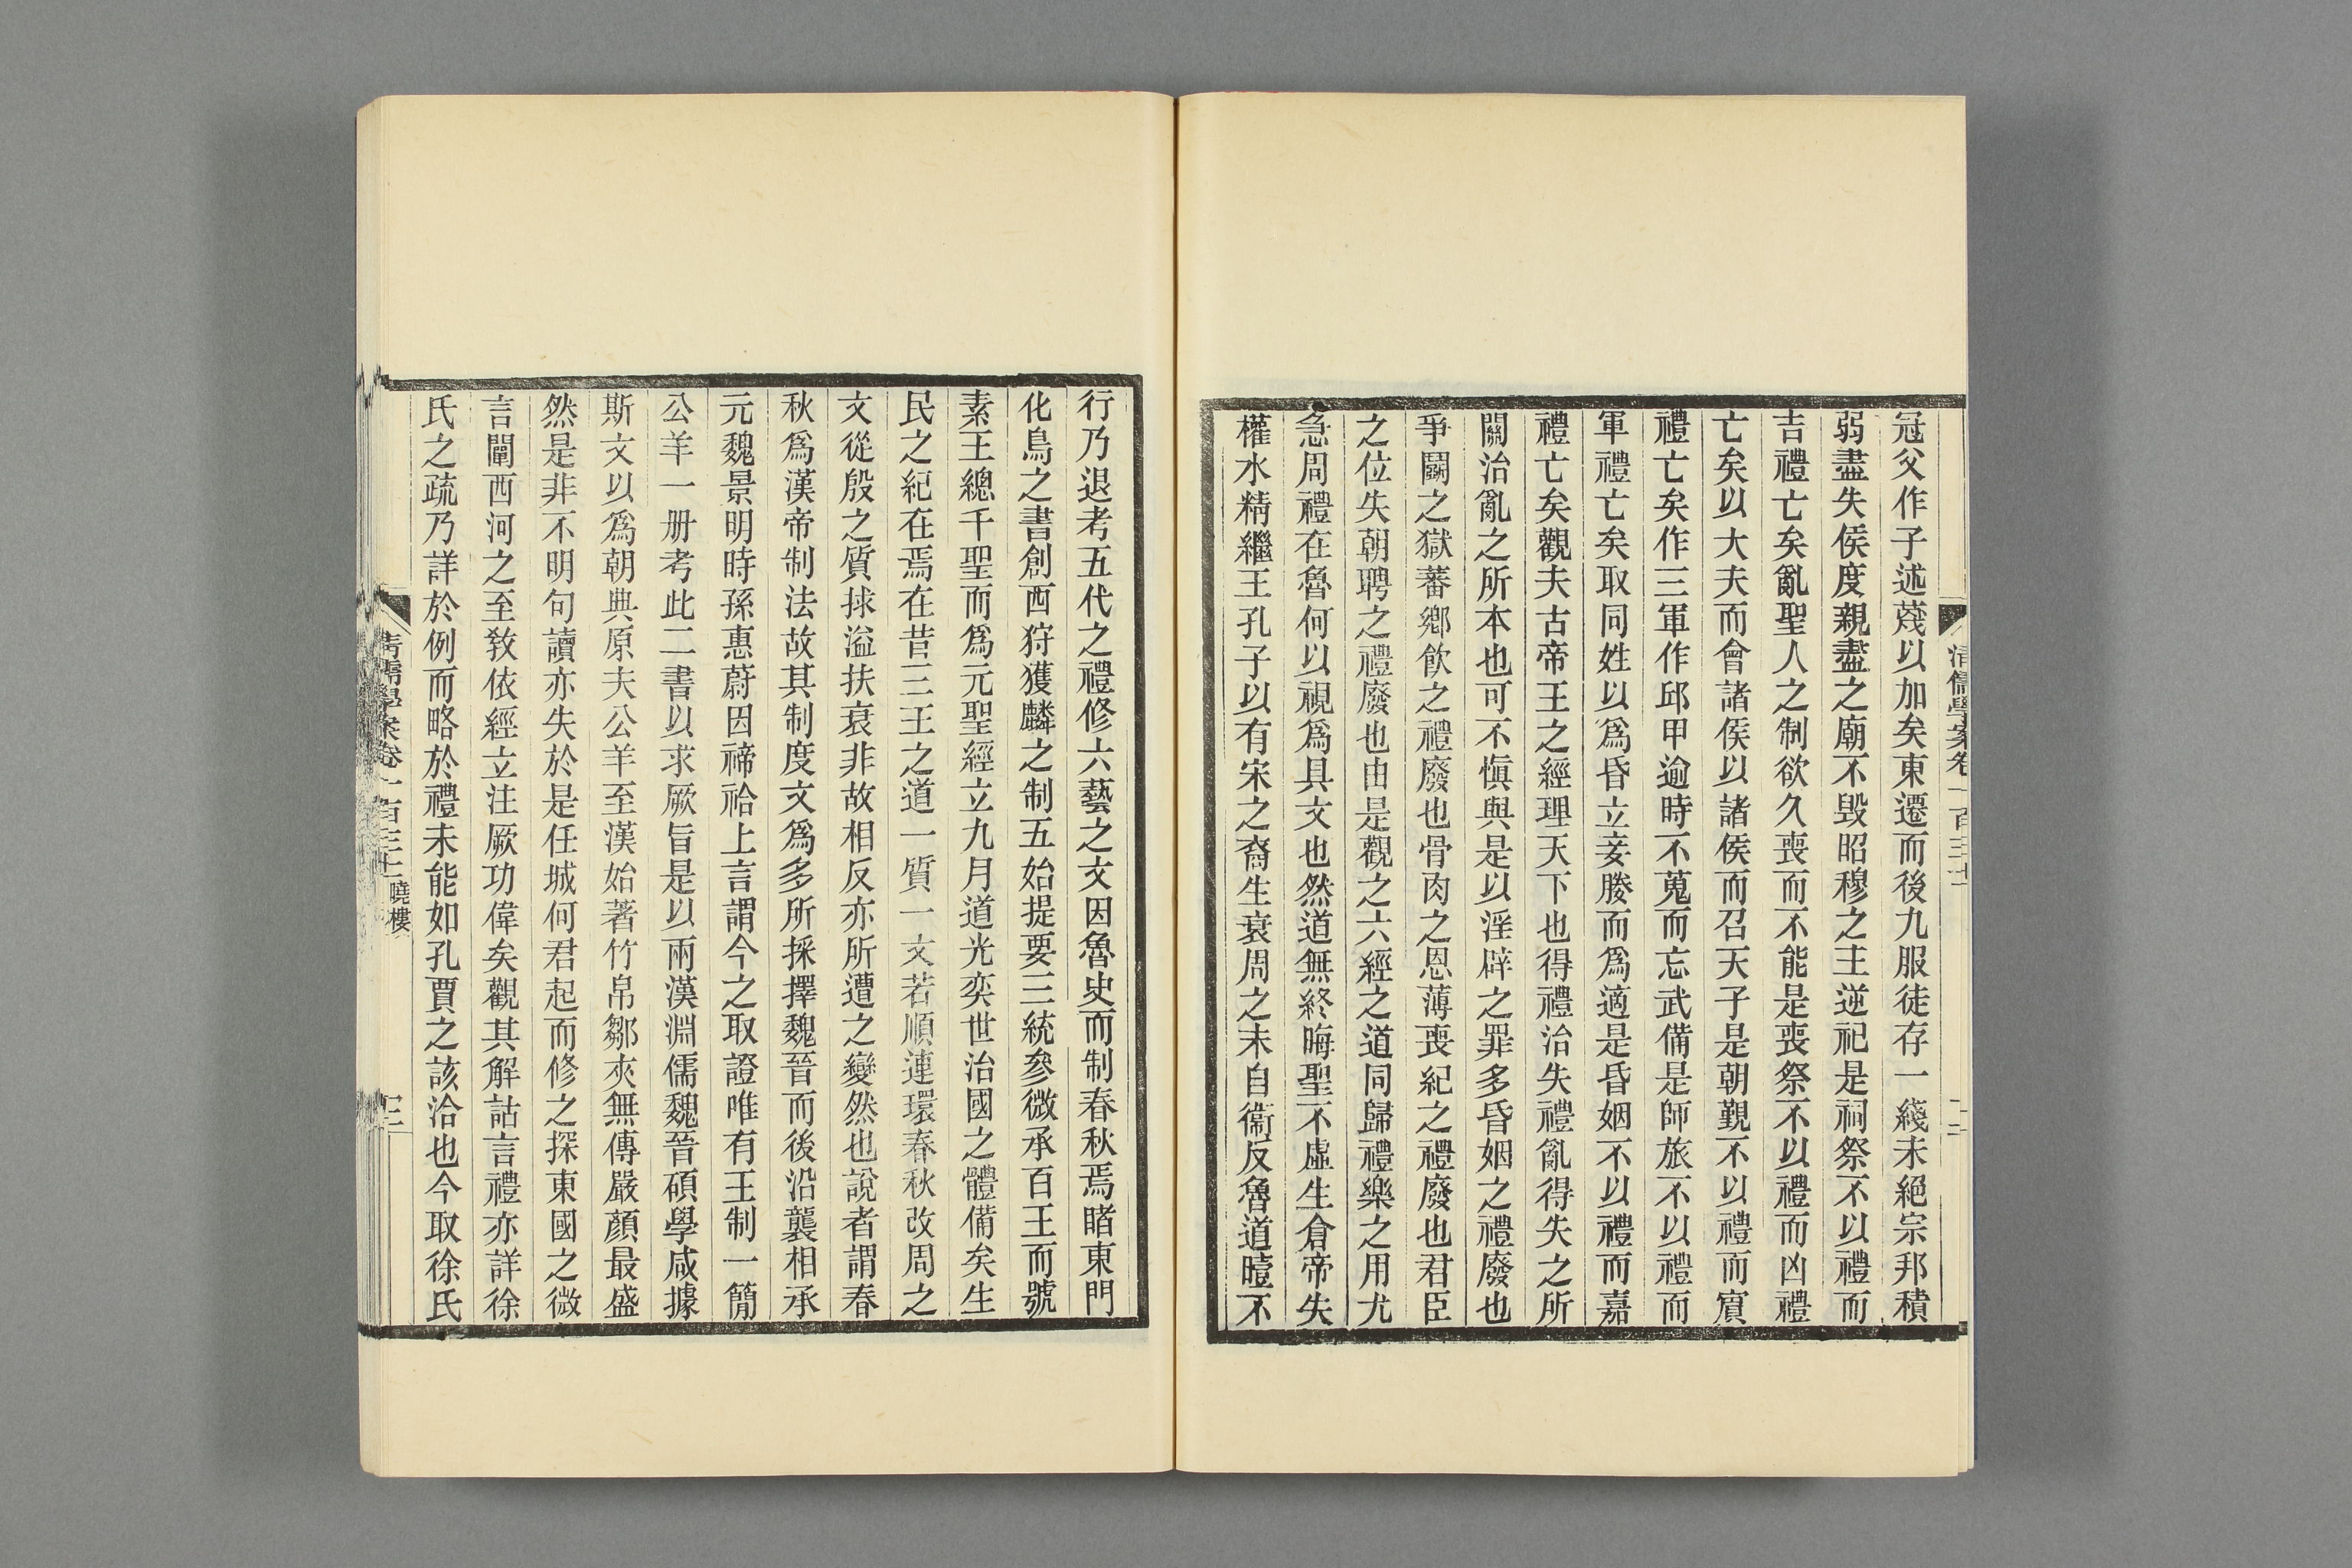 冠父作子述蔑以加矣東遷而後九服徒存一綫未絕宗邦積
弱盡失侯度親盡之廟不毀昭穆之主逆祀是祠祭不以禮而
吉禮亡矣亂聖人之制欲久喪而不能是喪祭不以禮而凶禮
亡矣以大夫而會諸侯以諸侯而召天子是朝覲不以禮而賓
禮亡矣作三軍作邱甲逾時不蒐而忘武備是師旅不以禮而
軍禮亡矣取同姓以爲昏立妾媵而爲適是昏姻不以禮而嘉
禮亡矣觀夫古帝王之經理天下也得禮治失禮亂得失之所
關治亂之所本也可不愼與是以淫辟之罪多昏姻之禮廢也
爭鬬之獄蕃鄉飮之禮廢也骨肉之恩薄喪紀之禮廢也君臣
之位失朝聘之禮廢也由是觀之六經之道同歸禮樂之用尤
急周禮在魯何以視爲具文也然道無終晦聖不虛生倉帝失
權水精繼王孔子以有宋之裔生衰周之末自衞反魯道噎不
行乃退考五代之禮修六藝之文因魯史而制春秋焉睹東門
化鳥之書創西狩獲麟之制五始提要三統參微承百王而號
素王總千聖而爲元聖經立九月道光奕世治國之體備矣生
民之紀在焉在昔三王之道一質一文若順連環春秋改周之
文從殷之質捄溢扶衰非故相反亦所遭之變然也說者謂春
秋爲漢帝制法故其制度文爲多所採擇魏晉而後沿襲相承
元魏景明時孫惠蔚因禘祫上言謂今之取證唯有王制一簡
公羊一册考此二書以求厥旨是以兩漢淵儒魏晉碩學咸據
斯文以爲朝典原夫公羊至漢始著竹帛鄒夾無傳嚴顏最盛
然是非不明句讀亦失於是任城何君起而修之探東國之微
言闡西河之至敎依經立注厥功偉矣觀其解詁言禮亦詳徐
氏之疏乃詳於例而略於禮未能如孔賈之該洽也今取徐氏
清儒學案卷一百三十一曉樓